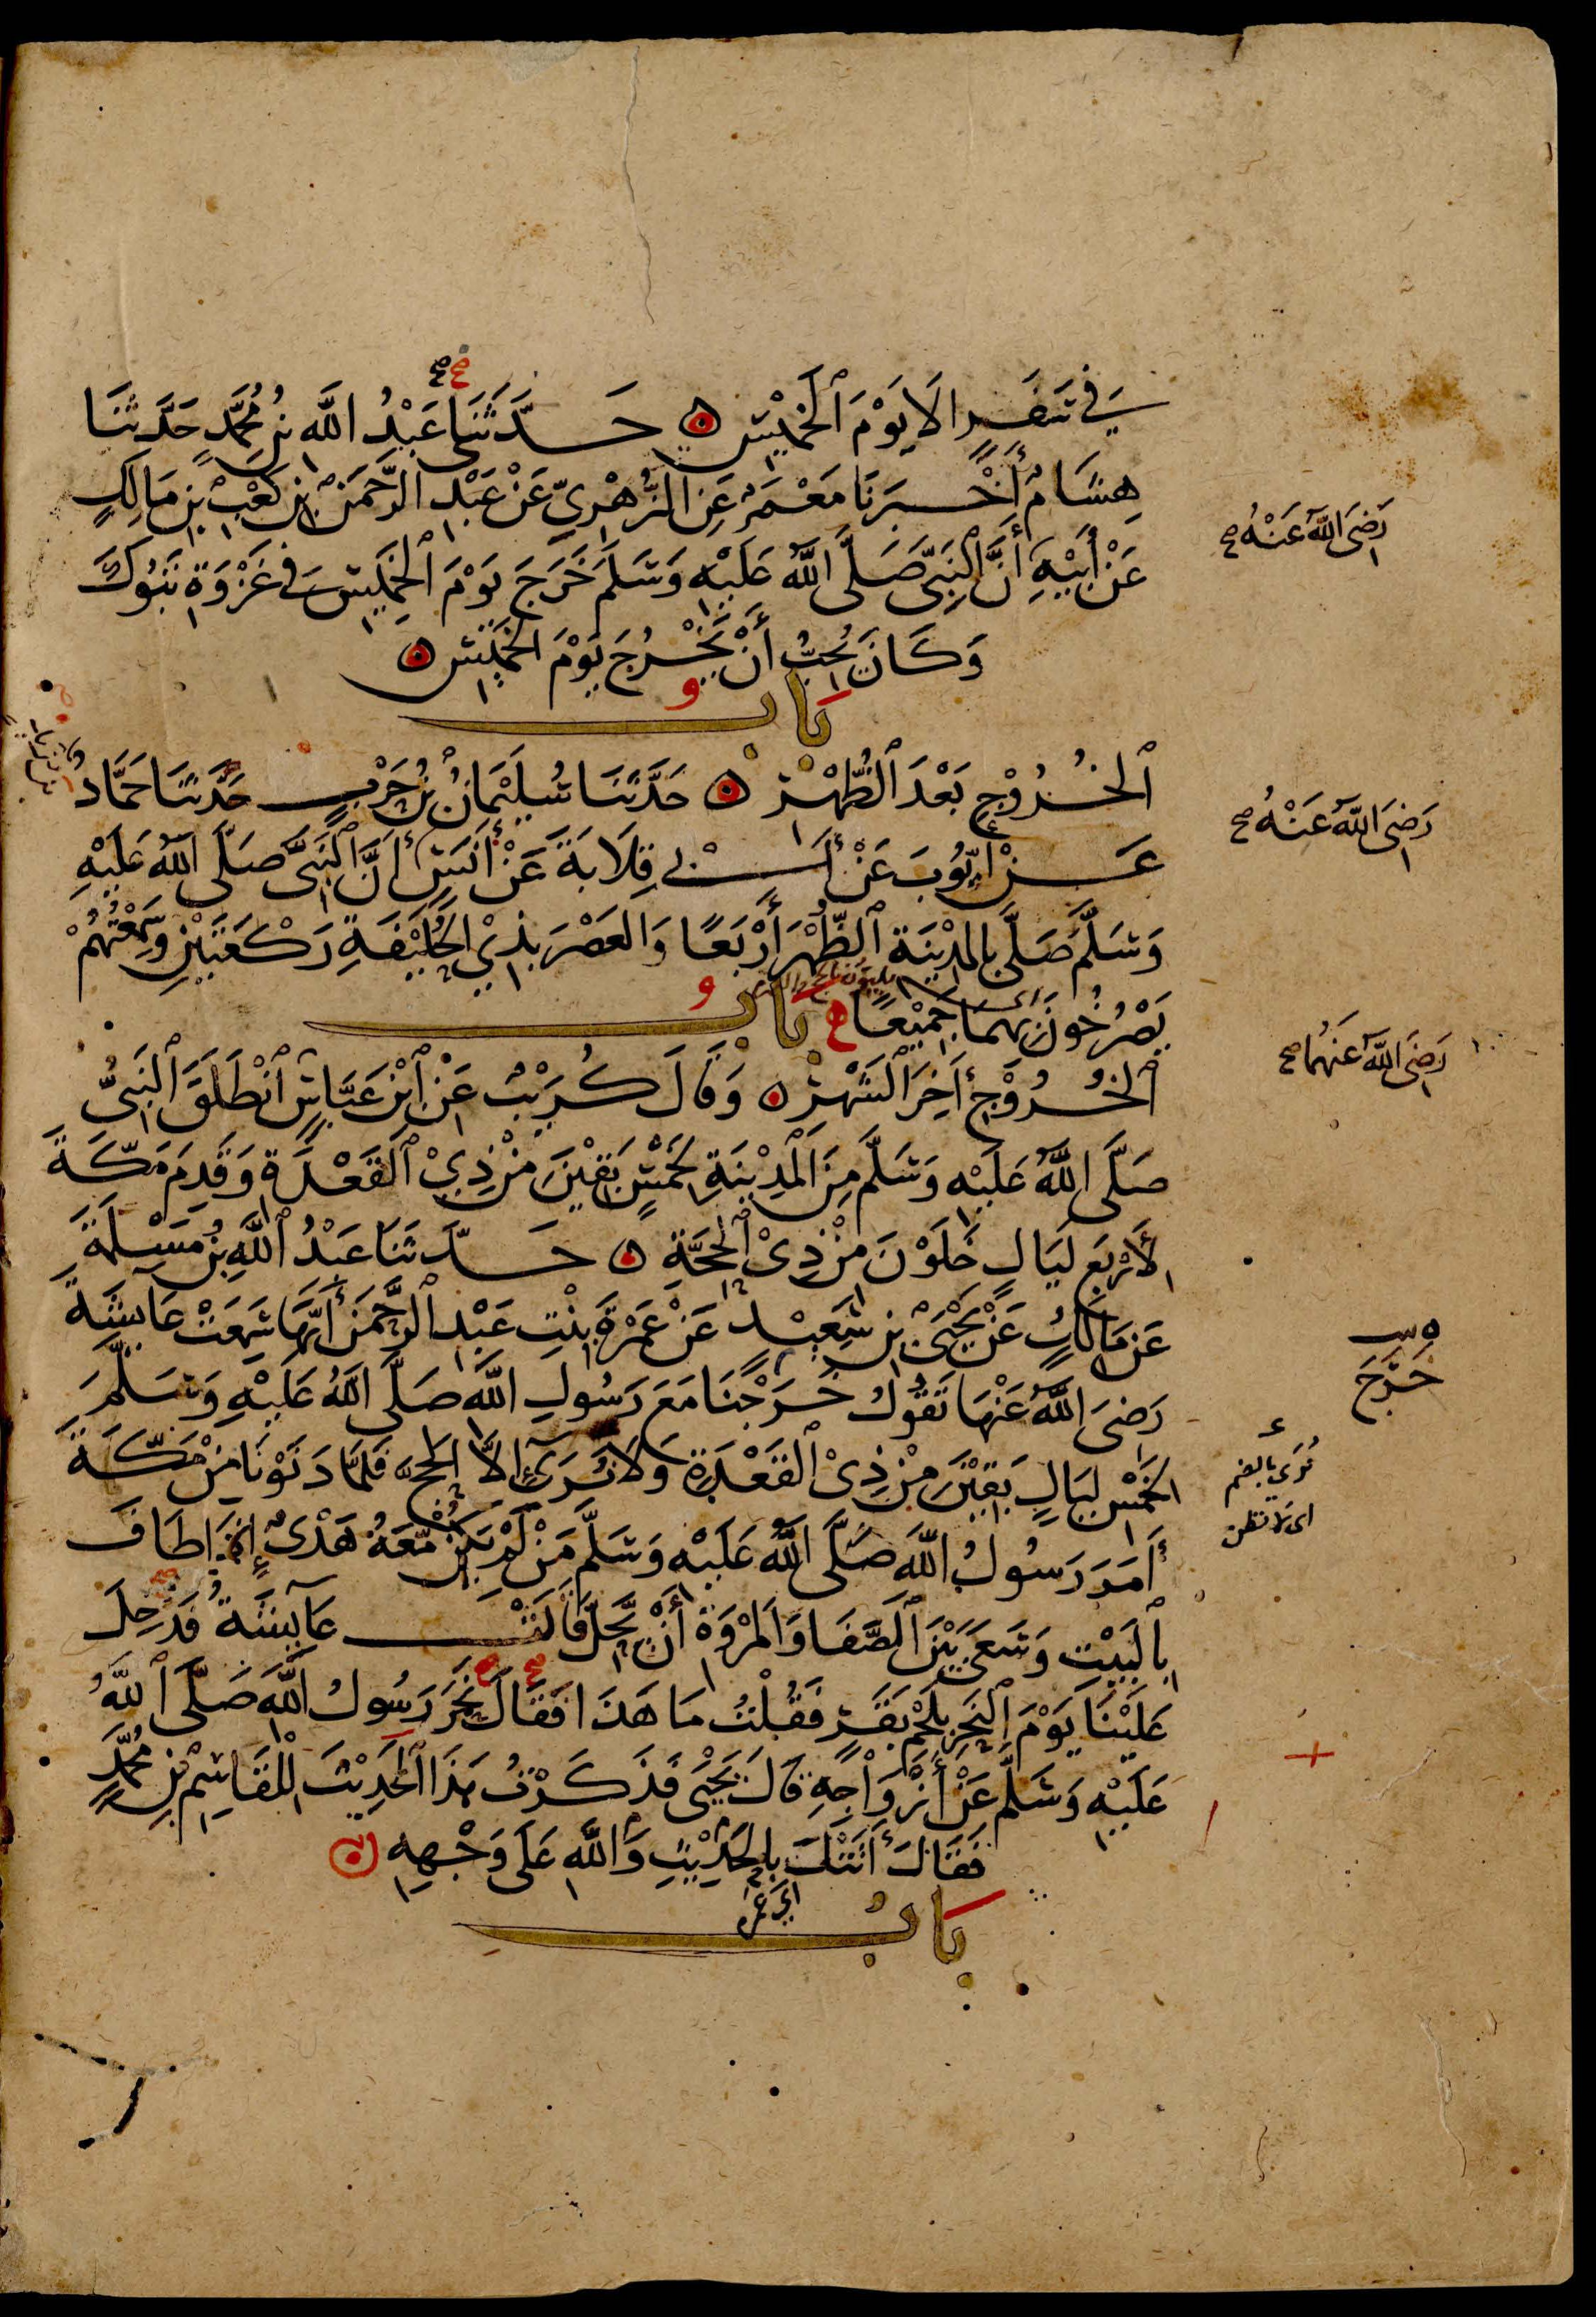 فِي سَفَرٍ إِلَّا يَوْمَ الْخَمِيْسِ ۞ حَدَّثَنَا عَبْدُ اللَّهِ بْنُ مُحَمَّدٍ حَدَّثَنَا
هِشَامٌ أَخْبَرَنَا مَعْمَرٌ عَنِ الزُّهْرِيِّ عَنْ عَبْدِ الرَّحْمَنِ بْنِ كَعْبِ بْنِ مَالِكٍ
رَضِيَ اللَّهُ عَنْهُ صح
عَنْ أَبِيْهِ أَنَّ النَّبِيَّ صَلَّى اللَّهُ عَلَيْهِ وَسَلَّمَ خَرَجَ يَوْمَ الْخَمِيْسِ فِي غَزْوَةِ تَبُوكَ
وَكَانَ يُحِبُّ أَنْ يَخْرُجَ يَوْمَ الْخَمِيْسِ ۞
بَابُ
الْخُرُوْجِ بَعْدَ الظُّهْرِ ۞ حَدَّثَنَا سُلَيْمَانُ بْنُ حَرْبٍ حَدَّثَنَا حَمَّادٌ
رَضِيَ اللَّهُ عَنْهُ صح
عَنْ أَيُّوبَ عَنْ أَبِي قِلَابَةَ عَنْ أَنَسٍ أَنَّ النَّبِيَّ صَلَّى اللَّهُ عَلَيْهِ
وَسَلَّمَ صَلَّى بِالْمَدِيْنَةِ الظُّهْرَ أَرْبَعًا وَالعَصْرَ بِذِي الْحُلَيْفَةِ رَكْعَتَيْنِ وَسَمِعْتُهُمْ
يَصْرُخُونَ بِهِمَا جَمِيْعًا
بَابُ
الْخُرُوْجِ آخِرَ الشَّهْرِ ۞ وَقَالَ كُرَيْبٌ عَنِ ابْنِ عَبَّاسٍ انْطَلَقَ النَّبِيُّ
رَضِيَ اللَّهُ عَنْهُمَا صح
صَلَّى اللَّهُ عَلَيْهِ وَسَلَّمَ مِنَ الْمَدِيْنَةِ لِخَمْسٍ بَقِيْنَ مِنْ ذِي الْقَعْدَةِ وَقَدِمَ مَكَّةَ
لِأَرْبَعِ لَيَالٍ خَلَوْنَ مِنْ ذِي الْحِجَّةِ ۞ حَدَّثَنَا عَبْدُ اللَّهِ بْنُ مَسْلَمَةَ
عَنْ مَالِكٍ عَنْ يَحْيَى بْنِ سَعِيْدٍ عَنْ عَمْرَةَ بِنْتِ عَبْدِ الرَّحْمَنِ أَنَّهَا سَمِعَتْ عَائِشَةَ
رَضِيَ اللَّهُ عَنْهَا تَقُوْلُ خَرَجْنَا مَعَ رَسُولِ اللَّهِ صَلَّى اللَّهُ عَلَيْهِ وَسَلَّمَ
خَرَجَ
لِخَمْسِ لَيَالٍ بَقِيْنَ مِنْ ذِي الْقَعْدَةِ وَلَا نُرَى إِلَّا الْحَجَّ فَلَمَّا دَنَوْنَا مِنْ مَكَّةَ
نُرَى بالضم
اى لا نظن
أَمَرَ رَسُولُ اللَّهِ صَلَّى اللَّهُ عَلَيْهِ وَسَلَّمَ مَنْ لَمْ يَكُنْ مَعَهُ هَدْيٌ إِذَا طَافَ
بِالْبَيْتِ وَسَعَى بَيْنَ الصَّفَا وَالْمَرْوَةِ أَنْ يَحِلَّ قَالَتْ عَائِشَةُ فَدُخِلَ
عَلَيْنَا يَوْمَ النَّحْرِ بِلَحْمِ بَقَرٍ فَقُلْتُ مَا هَذَا فَقَالَ نَحَرَ رَسُولُ اللَّهِ صَلَّى اللَّهُ
عَلَيْهِ وَسَلَّمَ عَنْ أَزْوَاجِهِ قَالَ يَحْيَى فَذَكَرْتُ هَذَا الْحَدِيْثَ لِلْقَاسِمِ بْنِ مُحَمَّدٍ
فَقَالَ أَتَتْكَ بِالْحَدِيْثِ وَاللَّهِ عَلَى وَجْهِهِ ۞
بَابُ